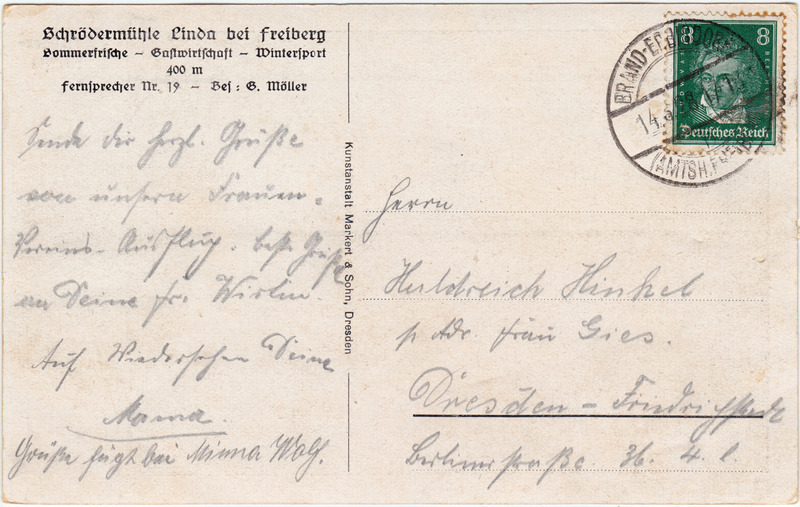 Schrödermühle Linda bei Freiberg
Sommerfrische – Gastwirtschaft – Wintersport
400 m
Fernsprecher Nr. 19 – Bes: G. Möller
Sende dir herzl. Grüße
von unsern Frauen-
Vereins-Ausflug. beste Grüße
an Deine fr. Wirtin.
Auf Wiedersehen Deine
Mama.
Grüße fügt bei Minna Wolf.
Kunstanstalt Markert & Sohn, Dresden
BRAND-ERBISDORF
14.
(AMTSH.FREIBERG)
8 8
Deutsches Reich
Herrn
Huldreich Hinkel
p Adr. Frau Gies.
Dresden – Friedrichstadt
Berlinerstraße. 36. 4. l.